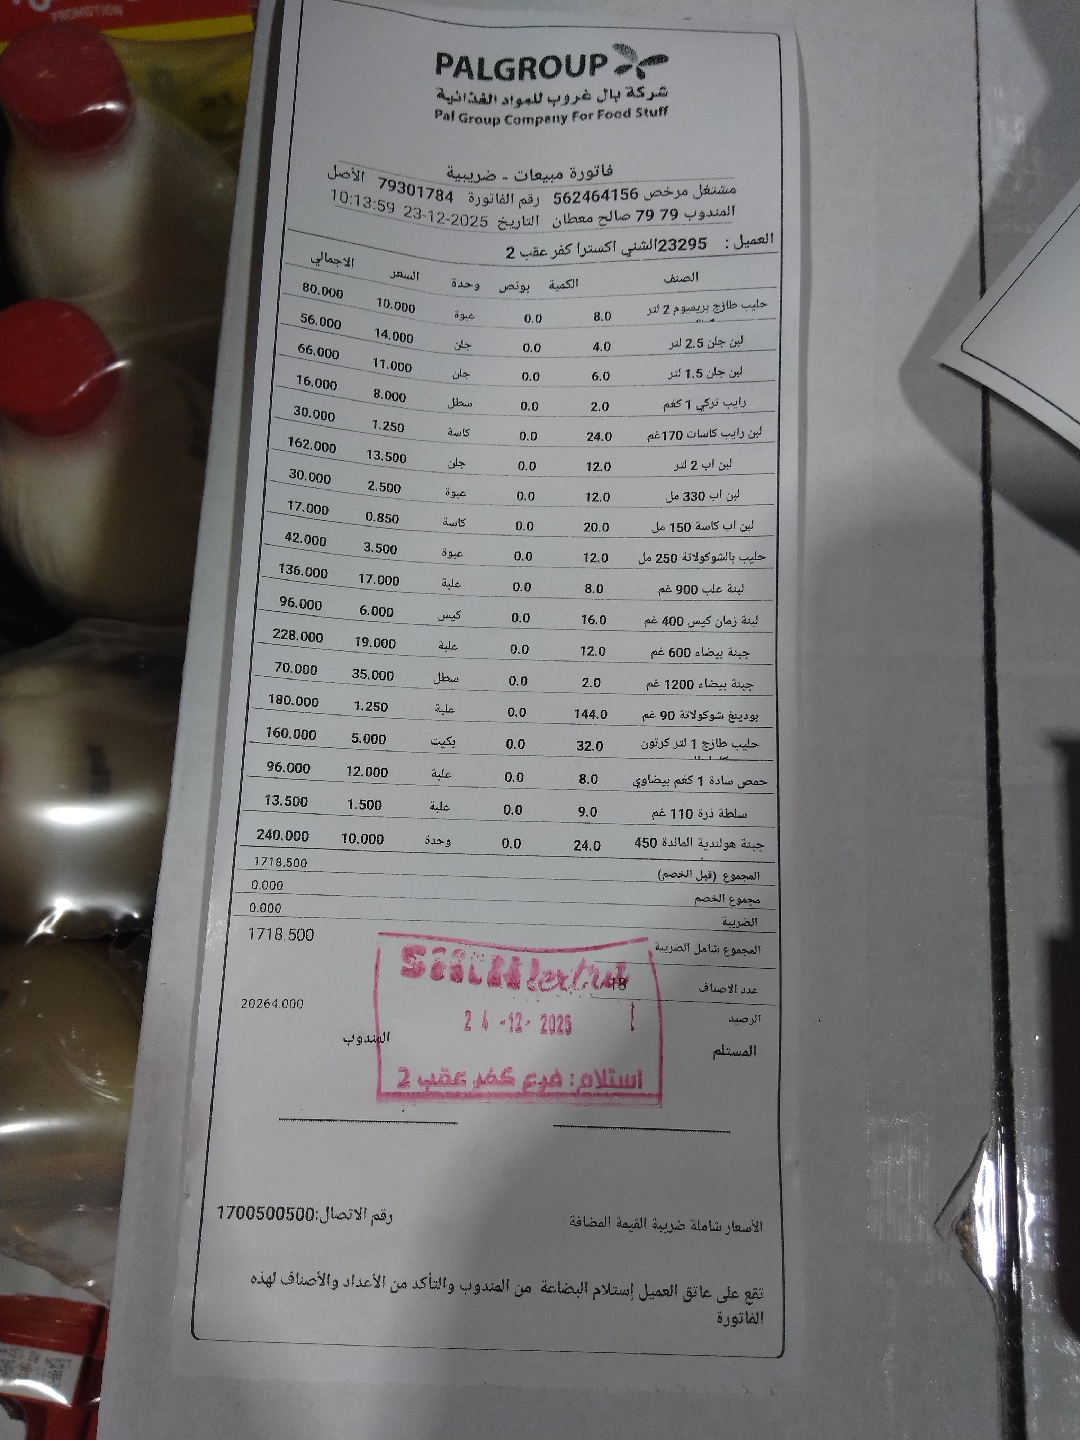 PROMOTION
PALGROUP
شركة بال غروب للمواد الغذائية
Pal Group Company For Food Stuff
فاتورة مبيعات - ضريبية
مشتغل مرخص 562464156 رقم الفاتورة 79301784 الأصل
المندوب 79 79 صالح معطان التاريخ 23-12-2025 10:13:59
العميل : 23295الشني اكسترا كفر عقب 2
الصنف الكمية بونص وحدة السعر الاجمالي
حليب طازج بريميوم 2 لتر 8.0 0.0 عبوة 10.000 80.000
لبن جلن 2.5 لتر 4.0 0.0 جلن 14.000 56.000
لبن جلن 1.5 لتر 6.0 0.0 جلن 11.000 66.000
رايب تركي 1 كغم 2.0 0.0 سطل 8.000 16.000
لبن رايب كاسات 170غم 24.0 0.0 كاسة 1.250 30.000
لبن اب 2 لتر 12.0 0.0 جلن 13.500 162.000
لبن اب 330 مل 12.0 0.0 عبوة 2.500 30.000
لبن اب كاسة 150 مل 20.0 0.0 كاسة 0.850 17.000
حليب بالشوكولاتة 250 مل 12.0 0.0 عبوة 3.500 42.000
لبنة علب 900 غم 8.0 0.0 علبة 17.000 136.000
لبنة زمان كيس 400 غم 16.0 0.0 كيس 6.000 96.000
جبنة بيضاء 600 غم 12.0 0.0 علبة 19.000 228.000
جبنة بيضاء 1200 غم 2.0 0.0 سطل 35.000 70.000
بودينغ شوكولاتة 90 غم 144.0 0.0 علبة 1.250 180.000
حليب طازج 1 لتر كرتون 32.0 0.0 بكيت 5.000 160.000
حمص سادة 1 كغم بيضاوي 8.0 0.0 علبة 12.000 96.000
سلطة ذرة 110 غم 9.0 0.0 علبة 1.500 13.500
جبنة هولندية المائدة 450 24.0 0.0 وحدة 10.000 240.000
المجموع (قبل الخصم) 1718.500
مجموع الخصم 0.000
الضريبة 0.000
المجموع شامل الضريبة 1718.500
عدد الاصناف 18
الرصيد 20264.000
المستلم المندوب
extra
24-12-2025
استلام: فرع كفر عقب 2
الأسعار شاملة ضريبة القيمة المضافة رقم الاتصال:1700500500
تقع على عاتق العميل إستلام البضاعة من المندوب والتأكد من الأعداد والأصناف لهذه
الفاتورة